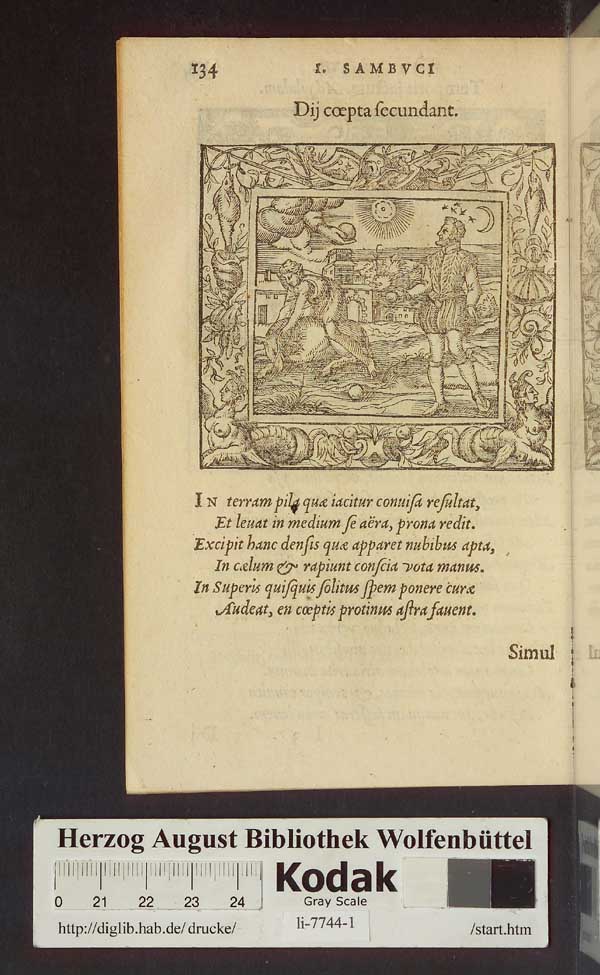 134 I. SAMBVCI
Dij cœpta ſecundant.
IN terram pila quæ iacitur conuiſa reſultat,
Et leuat in medium ſe aëra, prona redit.
Excipit hanc denſis quæ apparet nubibus apta,
In cælum & rapiunt conſcia vota manus.
In Superis quiſquis ſolitus ſpem ponere curæ
Audeat, en cœptis protinus aſtra fauent.
Simul
Herzog August Bibliothek Wolfenbüttel
0 21 22 23 24
Kodak
Gray Scale
http://diglib.hab.de/drucke/ li-7744-1 /start.htm